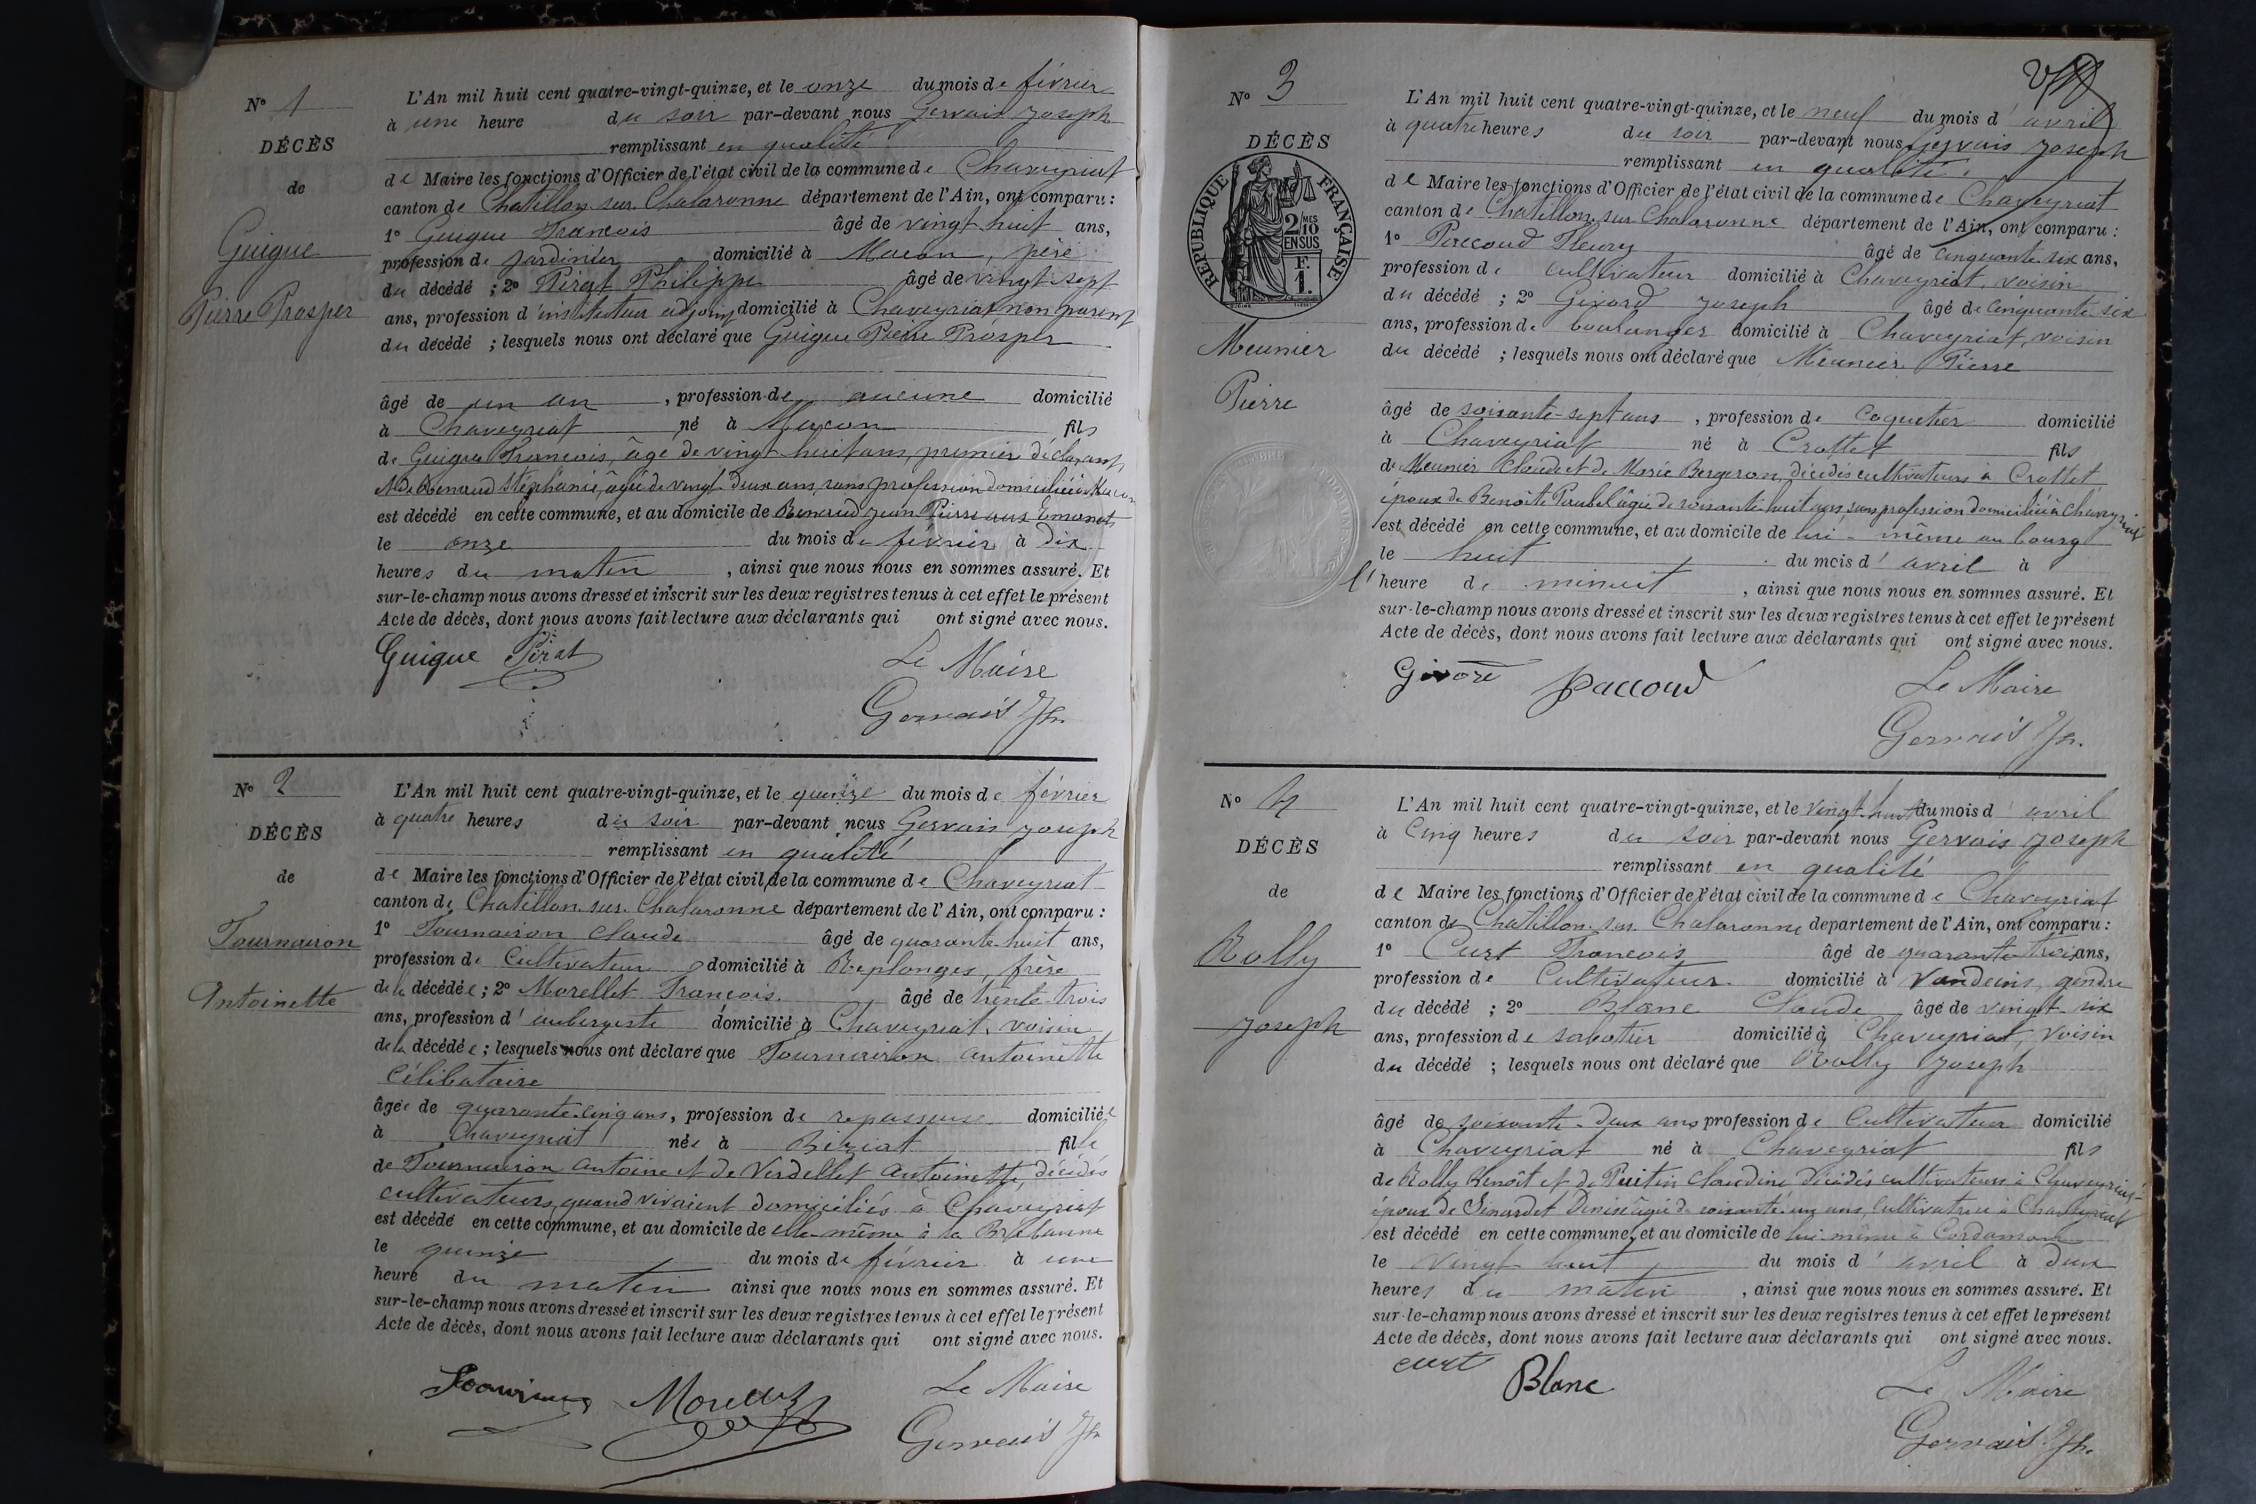 N° 1
DÉCÈS
de
Guigue
Pierre Prosper
L'An mil huit cent quatre-vingt-quinze, et le onze du mois de février
à une heure du soir par-devant nous Gervais Joseph
remplissant en qualité
de Maire les fonctions d'Officier de l'état civil de la commune de Chaveyriat
canton de Chatillon sur Chalaronne département de l'Ain, ont comparu :
1° Guigue François âgé de vingt huit ans,
profession de jardinier domicilié à Macon, père
du décédé ; 2° Pirat Philippe âgé de vingt sept
ans, profession d'instituteur adjoint domicilié à Chaveyriat non parent
du décédé ; lesquels nous ont déclaré que Guigue Pierre Prosper
âgé de un an , profession de aucune domicilié
à Chaveyriat né à Macon fils
de Guigue François, âgé de vingt huit ans, premier déclarant,
et de Renaud Stéphanie, âgée de vingt deux ans, sans profession domiciliée à Macon
est décédé en cette commune, et au domicile de Renaud Jean Pierre aux Emonets
le onze du mois de février à dix
heures du matin , ainsi que nous nous en sommes assuré. Et
sur-le-champ nous avons dressé et inscrit sur les deux registres tenus à cet effet le présent
Acte de décès, dont nous avons fait lecture aux déclarants qui ont signé avec nous.
Guigue Pirat Le Maire
Gervais Jh.
N° 2
DÉCÈS
de
Tournairon
Antoinette
L'An mil huit cent quatre-vingt-quinze, et le quinze du mois de février
à quatre heures du soir par-devant nous Gervais Joseph
remplissant en qualité
de Maire les fonctions d'Officier de l'état civil de la commune de Chaveyriat
canton de Chatillon sur Chalaronne département de l'Ain, ont comparu :
1° Tournairon Claude âgé de quarante huit ans,
profession de Cultivateur domicilié à Replonges, frère
de la décédée ; 2° Morellet François âgé de trente trois
ans, profession d'aubergiste domicilié à Chaveyriat, voisin
de la décédée ; lesquels nous ont déclaré que Tournairon Antoinette
Célibataire
âgée de quarante cinq ans, profession de repasseuse domiciliée
à Chaveyriat née à Biziat fille
de Tournairon Antoine et de Verdellet Antoinette, décédés
cultivateurs, quand vivaient domiciliés à Chaveyriat
est décédé en cette commune, et au domicile de elle-même à la
le quinze du mois de février à une
heure du matin ainsi que nous nous en sommes assuré. Et
sur-le-champ nous avons dressé et inscrit sur les deux registres tenus à cet effet le présent
Acte de décès, dont nous avons fait lecture aux déclarants qui ont signé avec nous.
Morellet Le Maire
Gervais Jh
N° 3
DÉCÈS
RÉPUBLIQUE FRANÇAISE
2 MES
10
EN SUS
F.
1.
Meunier
Pierre
L'An mil huit cent quatre-vingt-quinze, et le neuf du mois d'avril
à quatre heures du soir par-devant nous Gervais Joseph
remplissant en qualité
de Maire les fonctions d'Officier de l'état civil de la commune de Chaveyriat
canton de Chatillon sur Chalaronne département de l'Ain, ont comparu :
1° Paccoud Fleury âgé de cinquante six ans,
profession de cultivateur domicilié à Chaveyriat, voisin
du décédé ; 2° Givord Joseph âgé de cinquante six
ans, profession de boulanger domicilié à Chaveyriat, voisin
du décédé ; lesquels nous ont déclaré que Meunier Pierre
âgé de soixante-sept ans , profession de coquetier domicilié
à Chaveyriat né à Crottet fils
de Meunier Claude et de Marie Bergeron, décédés cultivateurs à Crottet
époux de Benoite âgée de soixante-huit ans sans profession domiciliée à Chaveyriat
est décédé en cette commune, et au domicile de lui-même au bourg
le huit du mois d'avril à
l'heure de minuit , ainsi que nous nous en sommes assuré. Et
sur-le-champ nous avons dressé et inscrit sur les deux registres tenus à cet effet le présent
Acte de décès, dont nous avons fait lecture aux déclarants qui ont signé avec nous.
Givord paccoud Le Maire
Gervais Jh.
N° 4
DÉCÈS
de
Rolly
Joseph
L'An mil huit cent quatre-vingt-quinze, et le vingt huit du mois d'avril
à Cinq heures du soir par-devant nous Gervais Joseph
remplissant en qualité
de Maire les fonctions d'Officier de l'état civil de la commune de Chaveyriat
canton de Chatillon sur Chalaronne département de l'Ain, ont comparu :
1° Curt François âgé de quarante trois ans,
profession de Cultivateur domicilié à Vandeins, gendre
du décédé ; 2° Blanc Claude âgé de vingt six
ans, profession de sabotier domicilié à Chaveyriat, voisin
du décédé ; lesquels nous ont déclaré que Rolly Joseph
âgé de soixante-deux ans profession de Cultivateur domicilié
à Chaveyriat né à Chaveyriat fils
de Rolly Benoît et de Claudine décédés cultivateurs à Chaveyriat
époux de Denise âgée de soixante un ans, cultivatrice à Chaveyriat
est décédé en cette commune, et au domicile de lui-même à
le vingt huit du mois d'avril à deux
heures du matin , ainsi que nous nous en sommes assuré. Et
sur-le-champ nous avons dressé et inscrit sur les deux registres tenus à cet effet le présent
Acte de décès, dont nous avons fait lecture aux déclarants qui ont signé avec nous.
curt Blanc Le Maire
Gervais Jh.